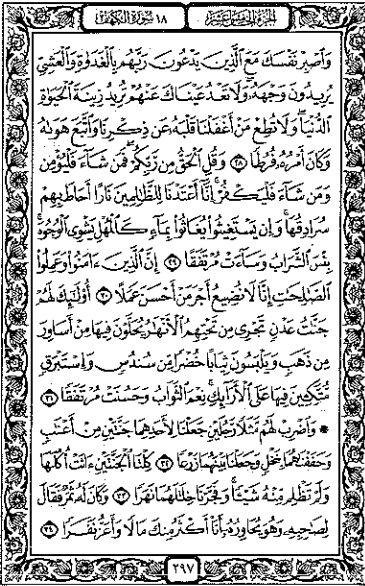 الجزء الخامس عشر ١٨ سورة الكهف
وَٱصۡبِرۡ نَفۡسَكَ مَعَ ٱلَّذِينَ يَدۡعُونَ رَبَّهُم بِٱلۡغَدَوٰةِ وَٱلۡعَشِيِّ
يُرِيدُونَ وَجۡهَهُۥۖ وَلَا تَعۡدُ عَيۡنَاكَ عَنۡهُمۡ تُرِيدُ زِينَةَ ٱلۡحَيَوٰةِ
ٱلدُّنۡيَاۖ وَلَا تُطِعۡ مَنۡ أَغۡفَلۡنَا قَلۡبَهُۥ عَن ذِكۡرِنَا وَٱتَّبَعَ هَوَىٰهُ
وَكَانَ أَمۡرُهُۥ فُرُطٗا ٢٨ وَقُلِ ٱلۡحَقُّ مِن رَّبِّكُمۡۖ فَمَن شَآءَ فَلۡيُؤۡمِن
وَمَن شَآءَ فَلۡيَكۡفُرۡۚ إِنَّآ أَعۡتَدۡنَا لِلظَّٰلِمِينَ نَارًا أَحَاطَ بِهِمۡ
سُرَادِقُهَاۚ وَإِن يَسۡتَغِيثُواْ يُغَاثُواْ بِمَآءٖ كَٱلۡمُهۡلِ يَشۡوِي ٱلۡوُجُوهَۚ
بِئۡسَ ٱلشَّرَابُ وَسَآءَتۡ مُرۡتَفَقًا ٢٩ إِنَّ ٱلَّذِينَ ءَامَنُواْ وَعَمِلُواْ
ٱلصَّٰلِحَٰتِ إِنَّا لَا نُضِيعُ أَجۡرَ مَنۡ أَحۡسَنَ عَمَلًا ٣٠ أُوْلَٰٓئِكَ لَهُمۡ
جَنَّٰتُ عَدۡنٖ تَجۡرِي مِن تَحۡتِهِمُ ٱلۡأَنۡهَٰرُ يُحَلَّوۡنَ فِيهَا مِنۡ أَسَاوِرَ
مِن ذَهَبٖ وَيَلۡبَسُونَ ثِيَابًا خُضۡرٗا مِّن سُندُسٖ وَإِسۡتَبۡرَقٖ
مُّتَّكِـِٔينَ فِيهَا عَلَى ٱلۡأَرَآئِكِۚ نِعۡمَ ٱلثَّوَابُ وَحَسُنَتۡ مُرۡتَفَقٗا ٣١
* وَٱضۡرِبۡ لَهُم مَّثَلٗا رَّجُلَيۡنِ جَعَلۡنَا لِأَحَدِهِمَا جَنَّتَيۡنِ مِنۡ أَعۡنَٰبٖ
وَحَفَفۡنَٰهُمَا بِنَخۡلٖ وَجَعَلۡنَا بَيۡنَهُمَا زَرۡعٗا ٣٢ كِلۡتَا ٱلۡجَنَّتَيۡنِ ءَاتَتۡ أُكُلَهَا
وَلَمۡ تَظۡلِم مِّنۡهُ شَيۡـٔٗاۚ وَفَجَّرۡنَا خِلَٰلَهُمَا نَهَرٗا ٣٣ وَكَانَ لَهُۥ ثَمَرٞ فَقَالَ
لِصَٰحِبِهِۦ وَهُوَ يُحَاوِرُهُۥٓ أَنَا۠ أَكۡثَرُ مِنكَ مَالٗا وَأَعَزُّ نَفَرٗا ٣٤
٢٩٧